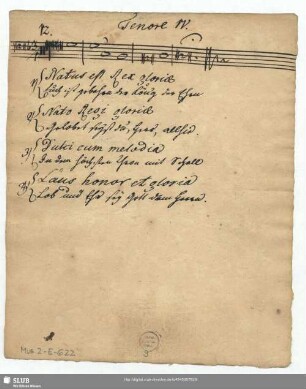 12. Tenore IV.
1) Natus est Rex gloriæ
Euch ist gebohren der König der Ehren
2) Nato Regi gloriæ
Gelobet seyst du, Herr,
3) Dulci cum melodia
In dem höchsten Thron mit Schall
4) Laus honor et gloria
Lob und Ehr sey Gott dem Herrn.
Mus 2-E-622
3.
SLUB